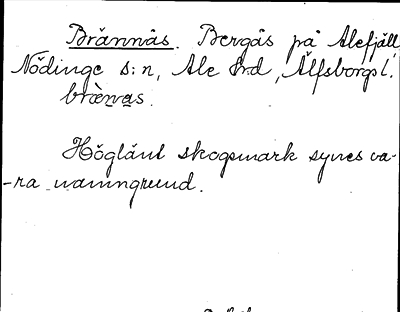 Brännås. Bergås på Alefjäll,
Nödinge s:n, Ale hrd, Älfsborgs l.
bræ̀nas.
Höglänt skogsmark synes va-
-ra namngrund.